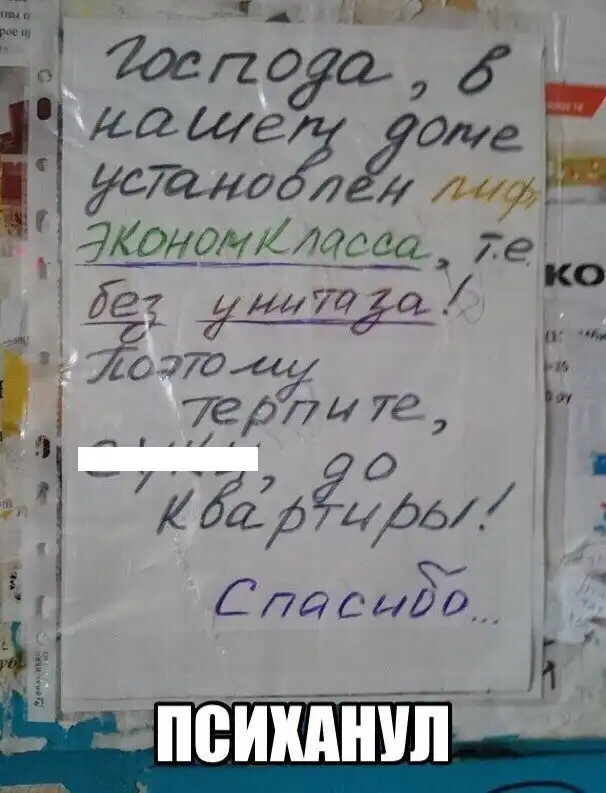 господа, в
нашем доме
установлен лифт
экономкласса, т.е.
без унитаза!
Поэтому
терпите,
до
квартиры!
Спасибо...
КО
ПСИХАНУЛ